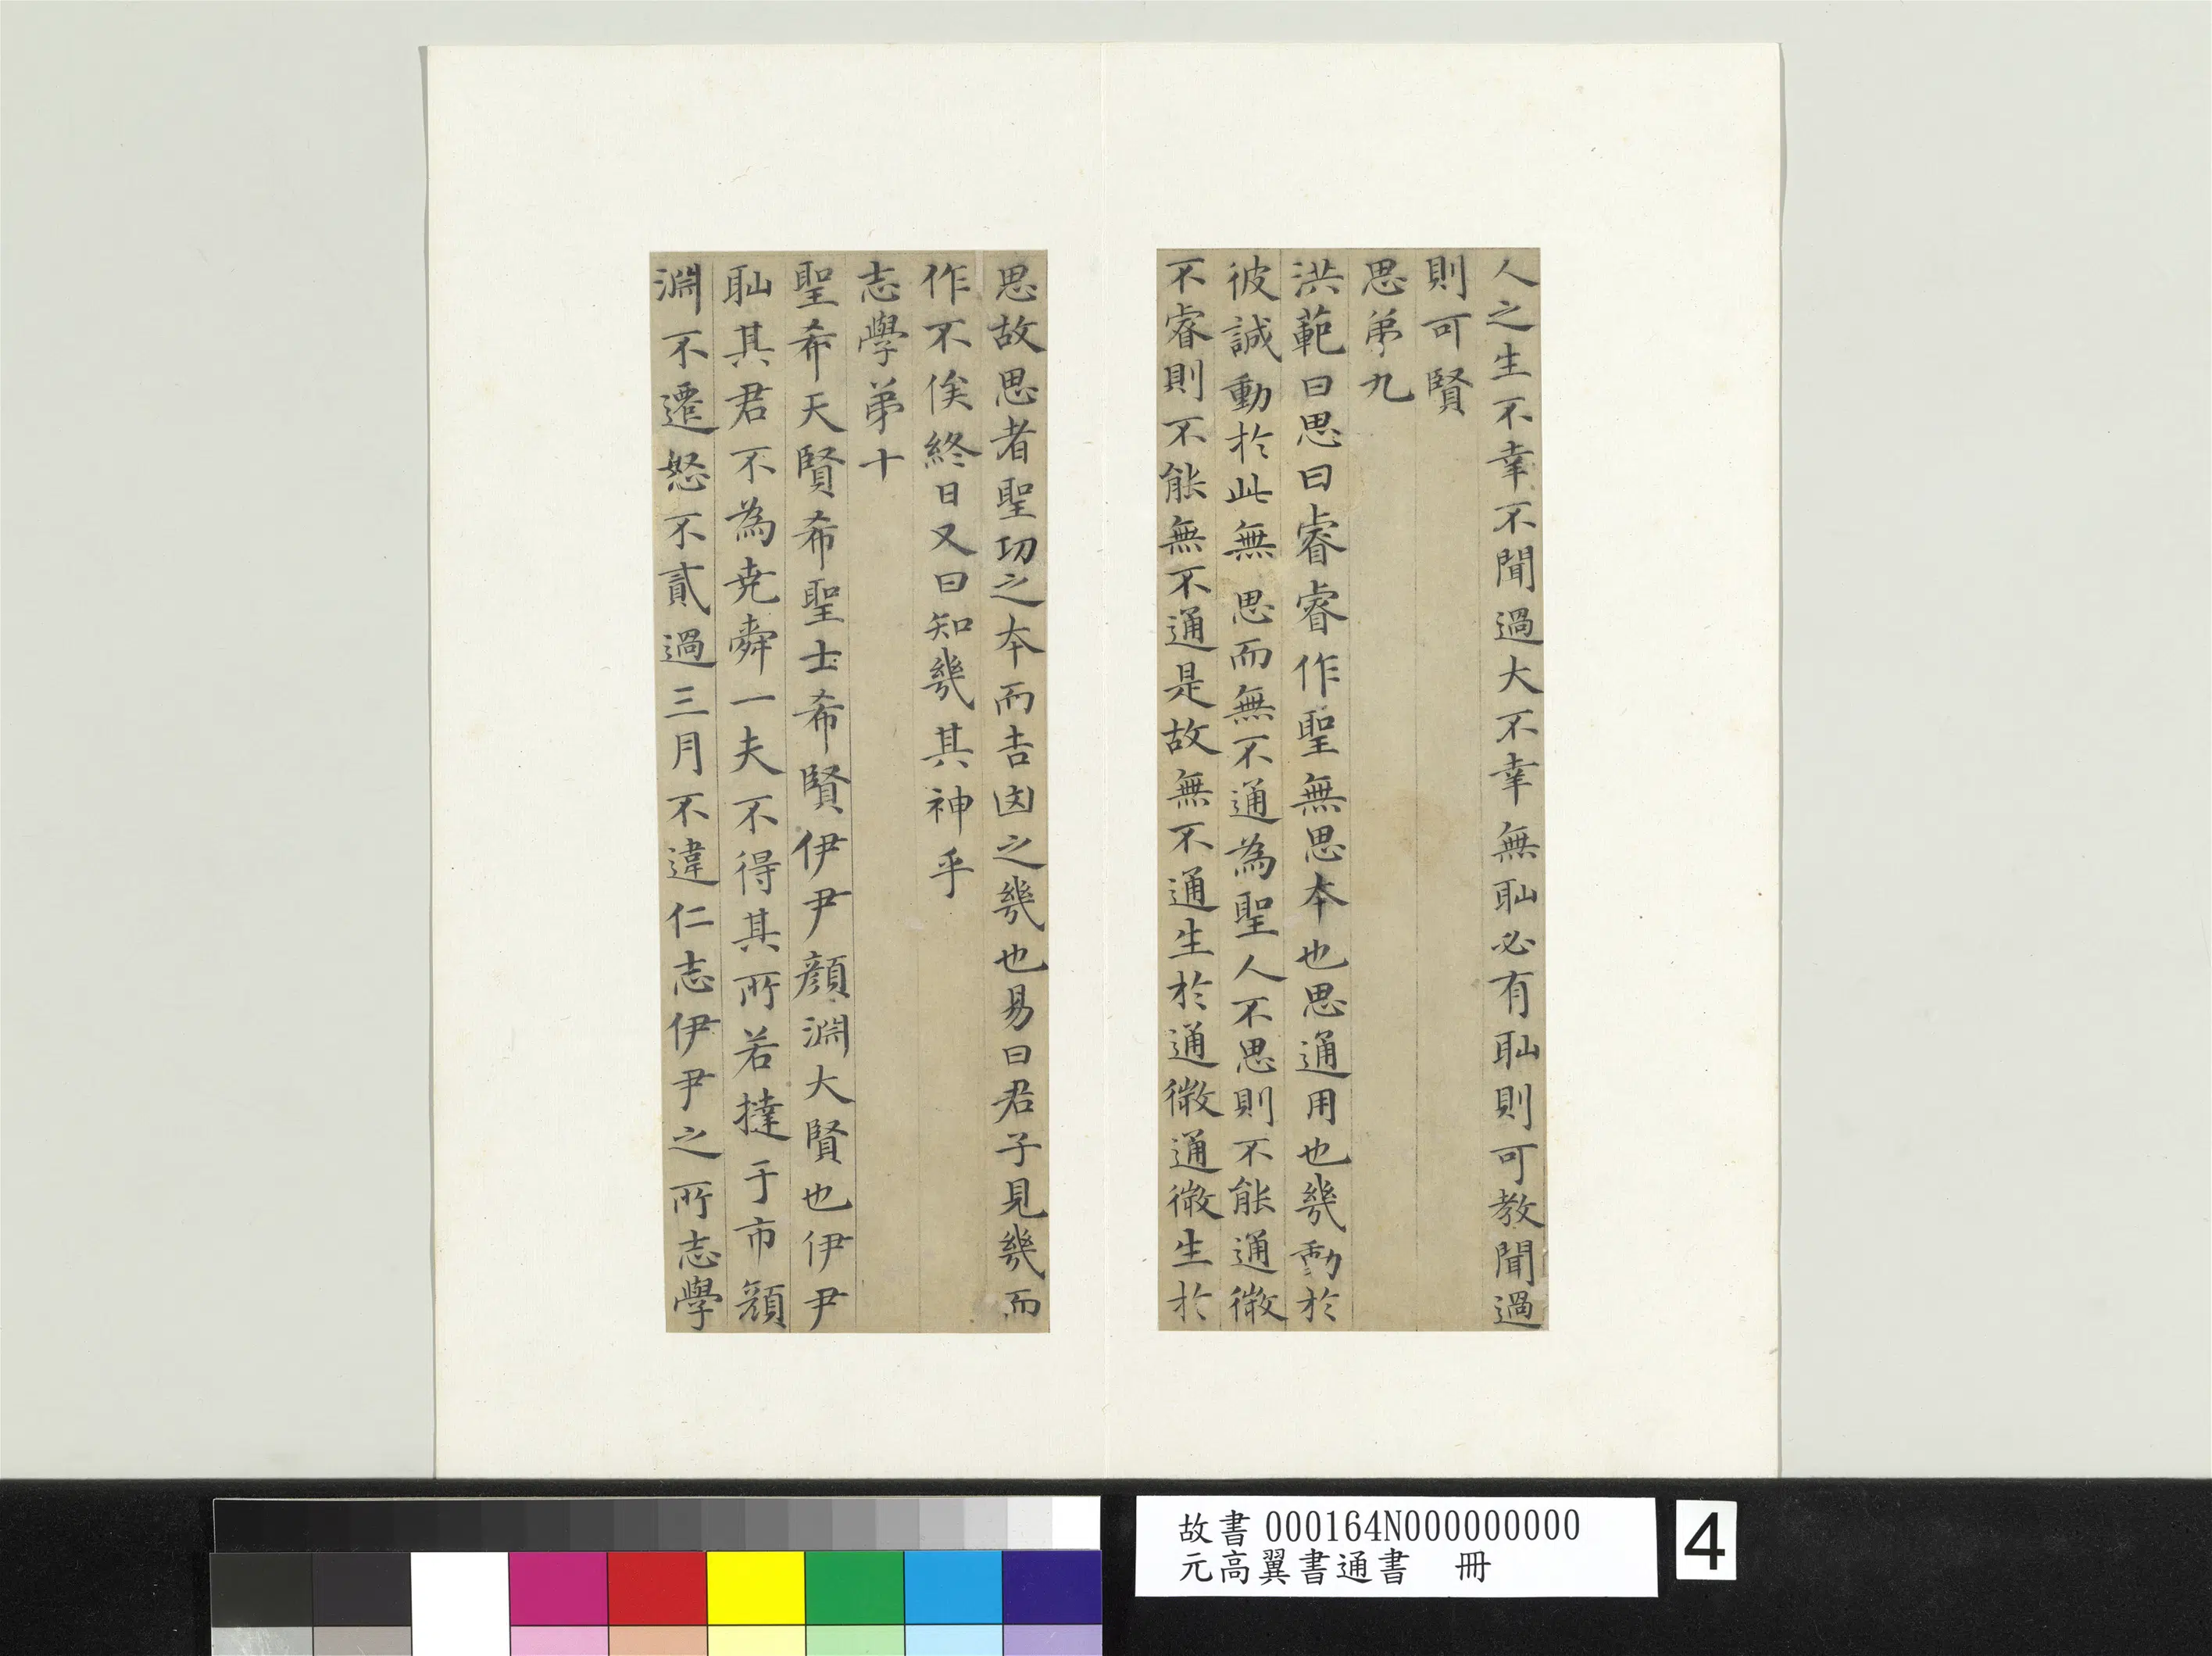 人之生不幸不聞過大不幸無耻必有耻則可教聞過
則可賢
思弟九
洪範曰思曰睿睿作聖無思本也思通用也幾動於
彼誠動於此無思而無不通為聖人不思則不能通微
不睿則不能無不通是故無不通生於通微通微生於
思故思者聖功之本而吉凶之幾也易曰君子見幾而
作不俟終日又曰知幾其神乎
志學弟十
聖希天賢希聖士希賢伊尹顏淵大賢也伊尹
耻其君不為堯舜一夫不得其所若撻于市顏
淵不遷怒不貳過三月不違仁志伊尹之所志學
故書000164N000000000
元高翼書通書 冊
4